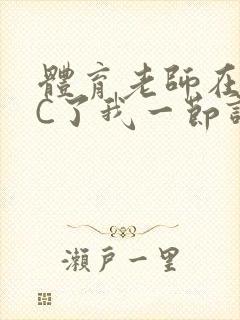 體育老師在
C了我一節
瀨戶一里